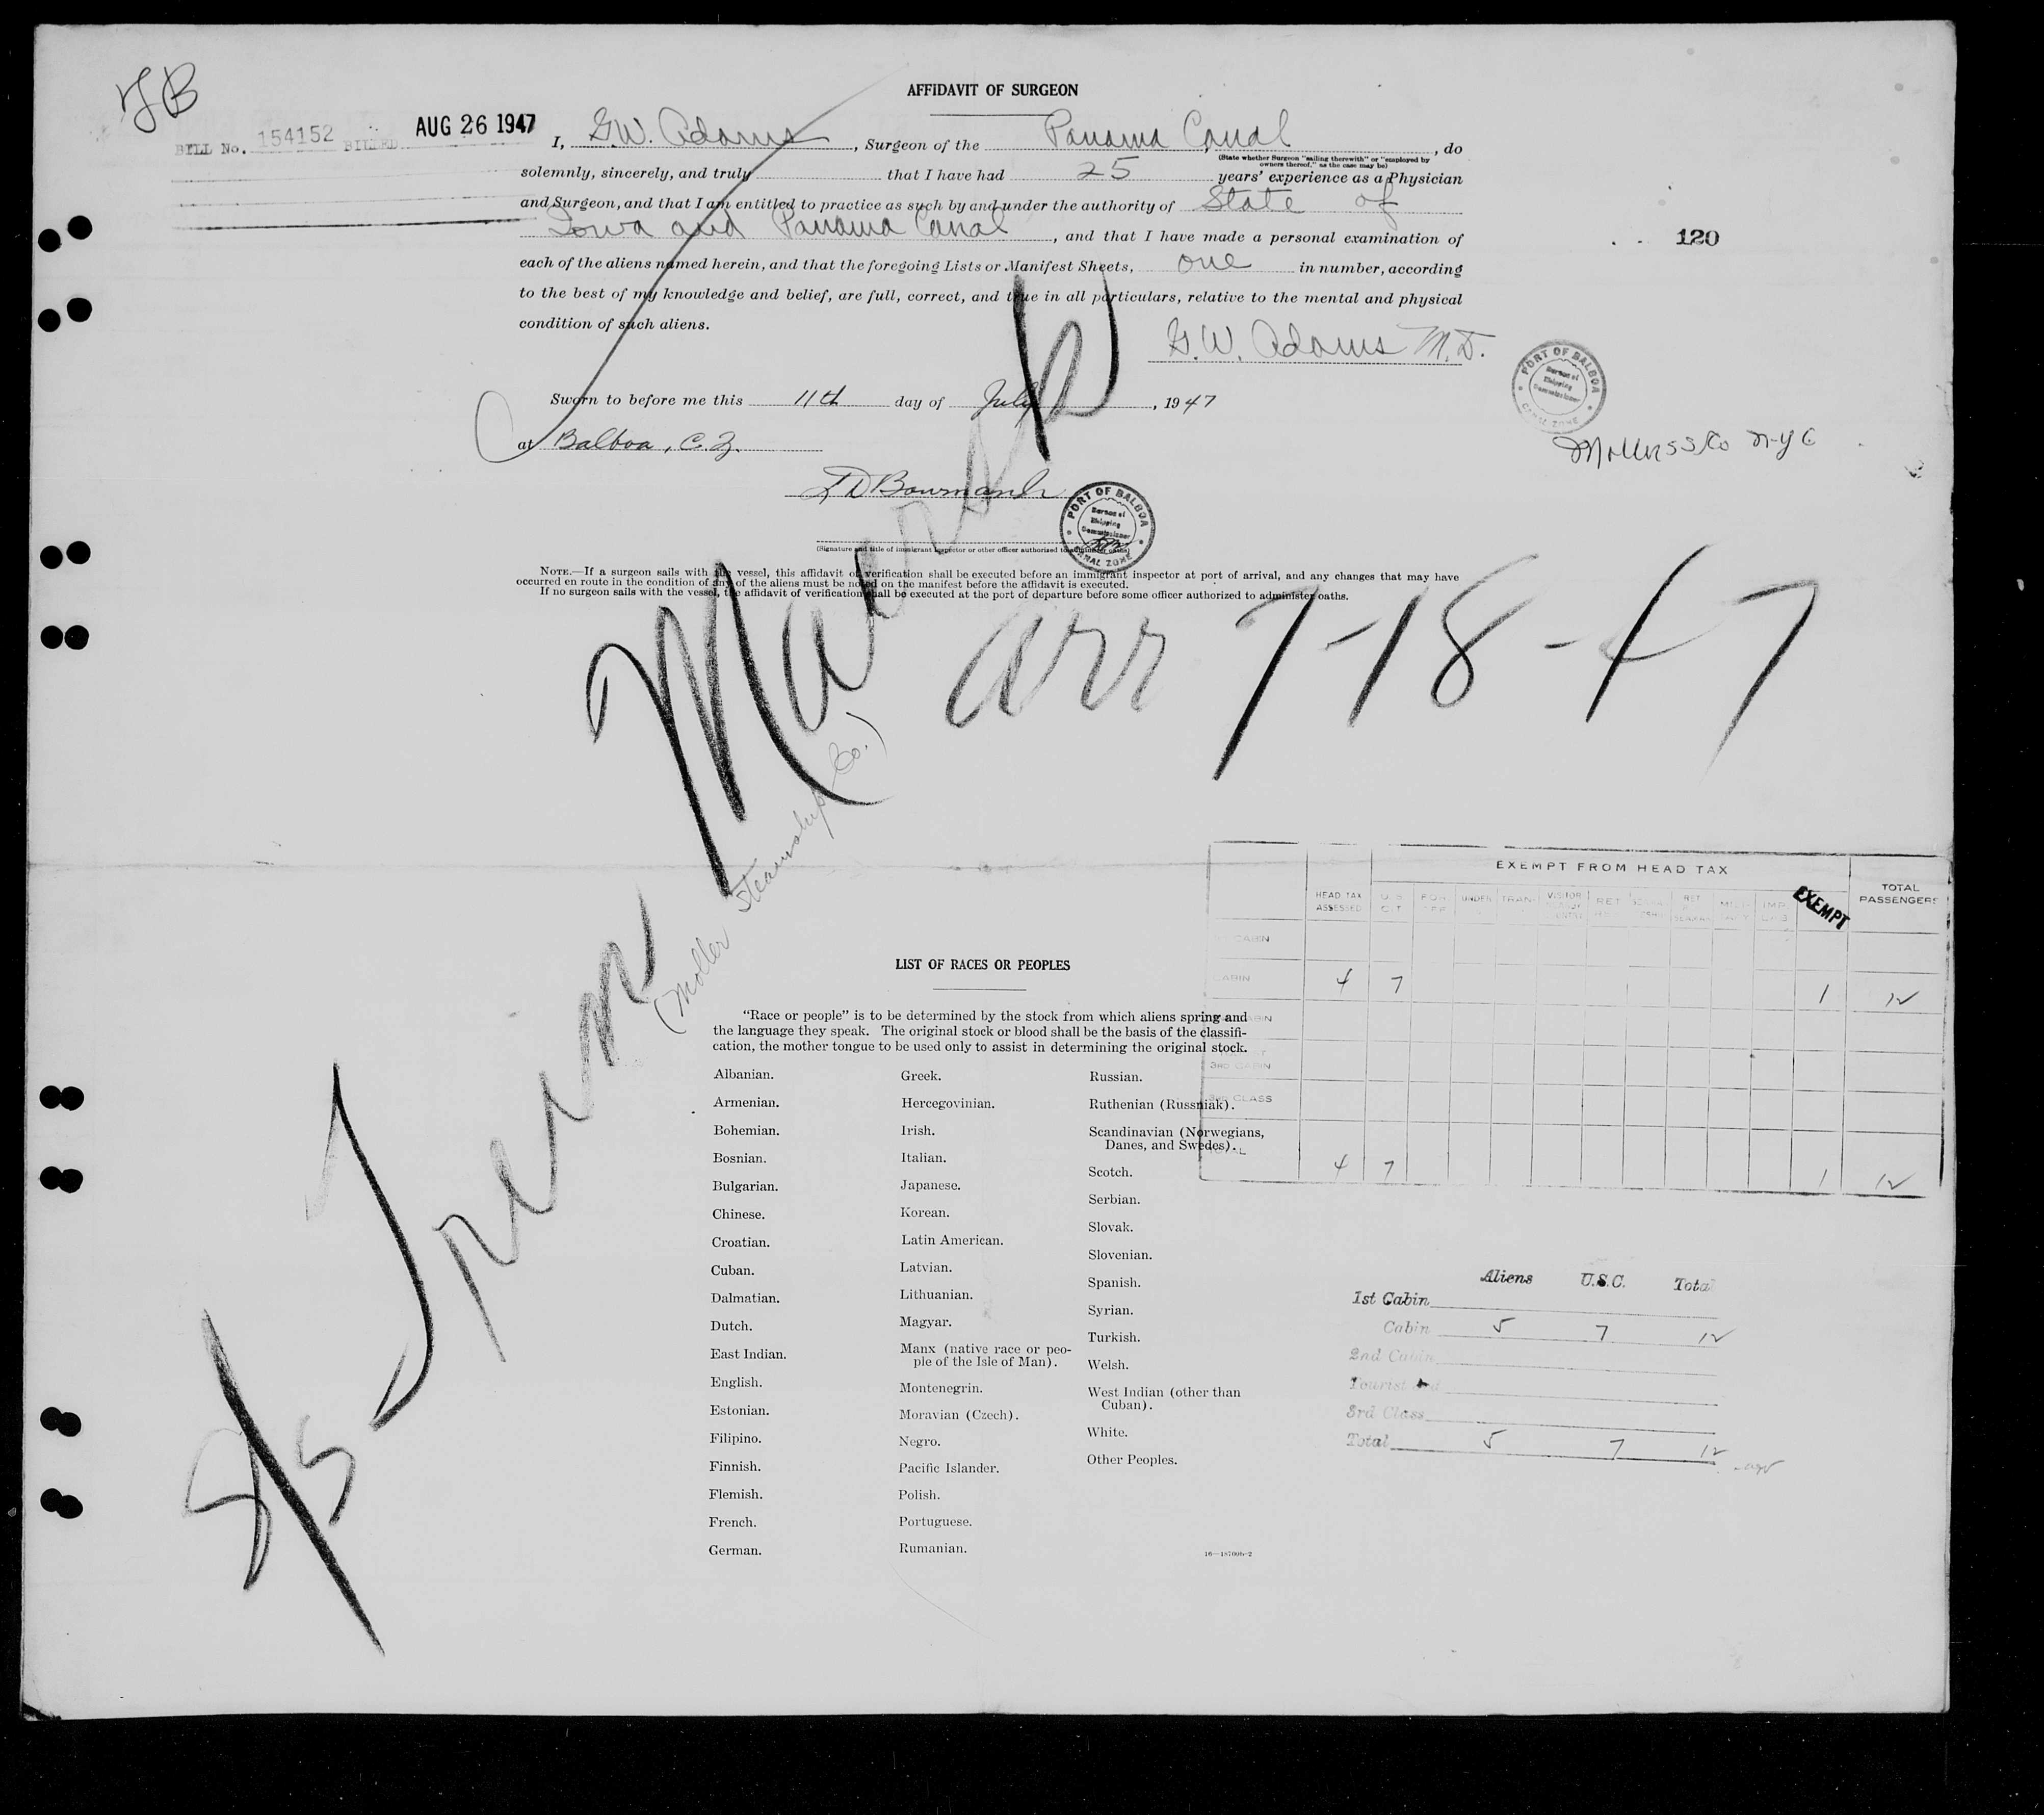 AFFIDAVIT OF SURGEON
BILL No. 154152 BILLED AUG 26 1947
I, G.W. Adams, Surgeon of the Panama Canal, do
(State whether Surgeon "sailing therewith" or "employed by owners thereof," as the case may be)
solemnly, sincerely, and truly that I have had 25 years' experience as a Physician
and Surgeon, and that I am entitled to practice as such by and under the authority of State of
Iowa and Panama Canal, and that I have made a personal examination of
120
each of the aliens named herein, and that the foregoing Lists or Manifest Sheets, one in number, according
to the best of my knowledge and belief, are full, correct, and true in all particulars, relative to the mental and physical
condition of such aliens.
G.W. Adams M.D.
PORT OF BALBOA
Bureau of
Shipping
Commissioner
CANAL ZONE
Sworn to before me this 11th day of July, 1947
at Balboa, C.Z.
PORT OF BALBOA
Bureau of
Shipping
Commissioner
CANAL ZONE
(Signature and title of immigrant inspector or other officer authorized to administer oaths)
NOTE.—If a surgeon sails with the vessel, this affidavit of verification shall be executed before an immigrant inspector at port of arrival, and any changes that may have
occurred en route in the condition of any of the aliens must be noted on the manifest before the affidavit is executed.
If no surgeon sails with the vessel, the affidavit of verification shall be executed at the port of departure before some officer authorized to administer oaths.
S/S Trein Maersk
(Moller Steamship Co.)
arr 7-18-47
EXEMPT FROM HEAD TAX
HEAD TAX ASSESSED
EXEMPT
TOTAL PASSENGERS
CABIN 4 7 1 12
3RD CABIN
3RD CLASS
TOTAL 4 7 1 12
LIST OF RACES OR PEOPLES
"Race or people" is to be determined by the stock from which aliens spring and
the language they speak. The original stock or blood shall be the basis of the classifi-
cation, the mother tongue to be used only to assist in determining the original stock.
Albanian.
Armenian.
Bohemian.
Bosnian.
Bulgarian.
Chinese.
Croatian.
Cuban.
Dalmatian.
Dutch.
East Indian.
English.
Estonian.
Filipino.
Finnish.
Flemish.
French.
German.
Greek.
Hercegovinian.
Irish.
Italian.
Japanese.
Korean.
Latin American.
Latvian.
Lithuanian.
Magyar.
Manx (native race or peo-
ple of the Isle of Man).
Montenegrin.
Moravian (Czech).
Negro.
Pacific Islander.
Polish.
Portuguese.
Rumanian.
Russian.
Ruthenian (Russniak).
Scandinavian (Norwegians,
Danes, and Swedes).
Scotch.
Serbian.
Slovak.
Slovenian.
Spanish.
Syrian.
Turkish.
Welsh.
West Indian (other than
Cuban).
White.
Other Peoples.
Aliens U.S.C. Total
1st Cabin
Cabin 5 7 12
2nd Cabin
Tourist
3rd Class
Total 5 7 12